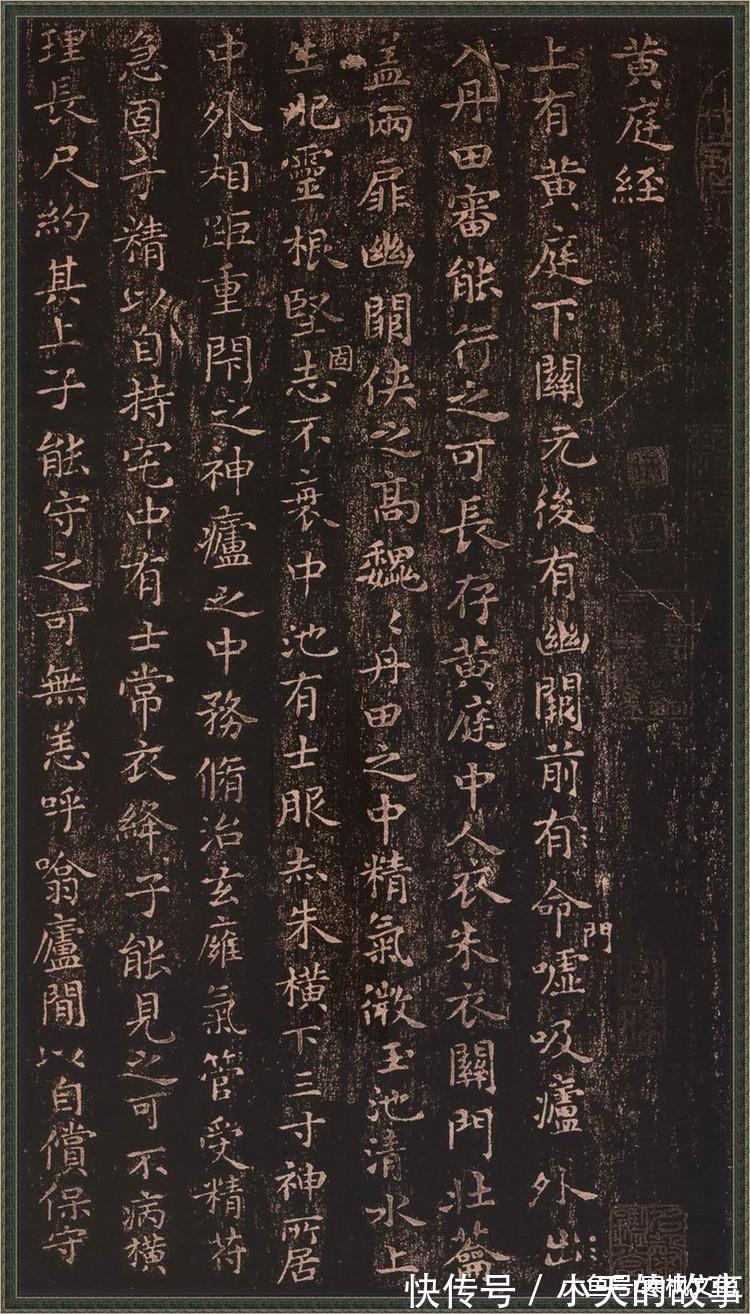 黄庭經
上有黄庭下關元後有幽闕前有命門嘘吸廬外出
入丹田審能行之可長存黄庭中人衣朱衣關門壯蘥
盖兩扉幽關侠之高魏魏丹田之中精氣微玉池清水上
生肥靈根堅固志不衰中池有士服赤朱横下三寸神所居
中外相距重閇之神廬之中務脩治玄廱氣管受精符
急固子精以自持宅中有士常衣絳子能見之可不病横
理長尺約其上子能守之可無恙呼噏廬閒以自償保守
快传号 / 小天的故事